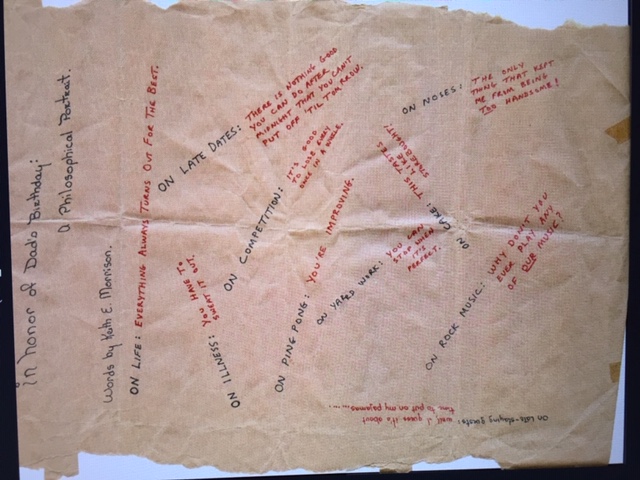 in honor of Dad's Birthday:
a Philosophical Portrait.
Words by Kath E. Morrison.
ON LIFE: EVERYTHING ALWAYS TURNS OUT FOR THE BEST.
ON LATE DATES: THERE IS NOTHING GOOD
YOU CAN DO AFTER
MIDNIGHT THAT YOU CAN'T
PUT OFF 'TIL TOMORROW.
ON ILLNESS: YOU HAVE TO
SWEAT IT OUT.
ON COMPETITION: IT'S GOOD
TO LOSE EVERY
ONCE IN A WHILE.
ON PING PONG: YOU'RE IMPROVING.
ON YARD WORK: YOU CAN
STOP WHEN
IT'S
PERFECT.
ON CAKE: THIS TASTES
LIKE A
STOREBOUGHT!
ON NOSES: THE ONLY
THING THAT KEPT
ME FROM BEING
TOO HANDSOME!
ON ROCK MUSIC: WHY DON'T YOU
EVER PLAY ANY
OF OUR MUSIC?
On late-staying guests: well, I guess it's about
time to put on my pajamas.....